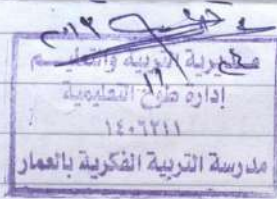 ٢٠١٣
مديرية التربية والتعليم
إدارة طوخ التعليمية
١٤٠٦٢١١
مدرسة التربية الفكرية بالعمار